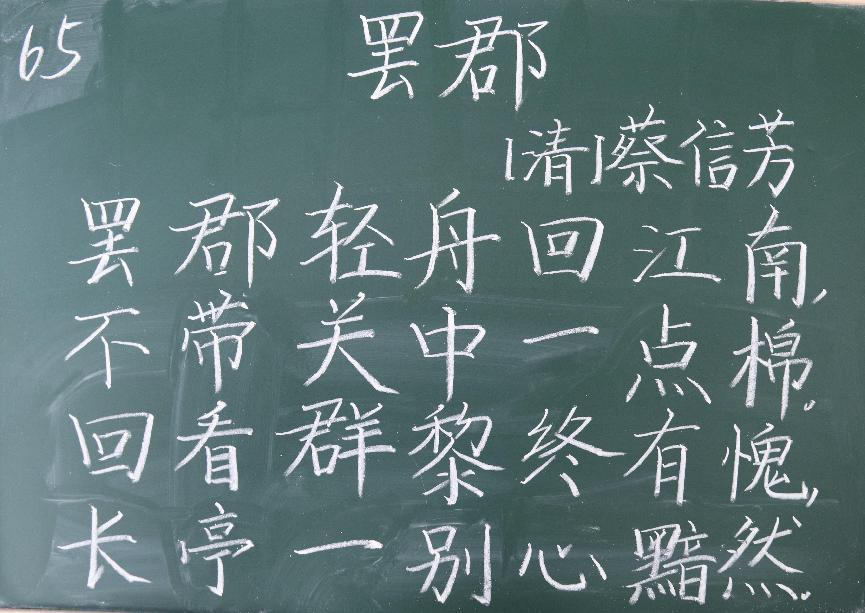 65
罢郡
[清]蔡信芳
罢郡轻舟回江南,
不带关中一点棉。
回看群黎终有愧,
长亭一别心黯然.